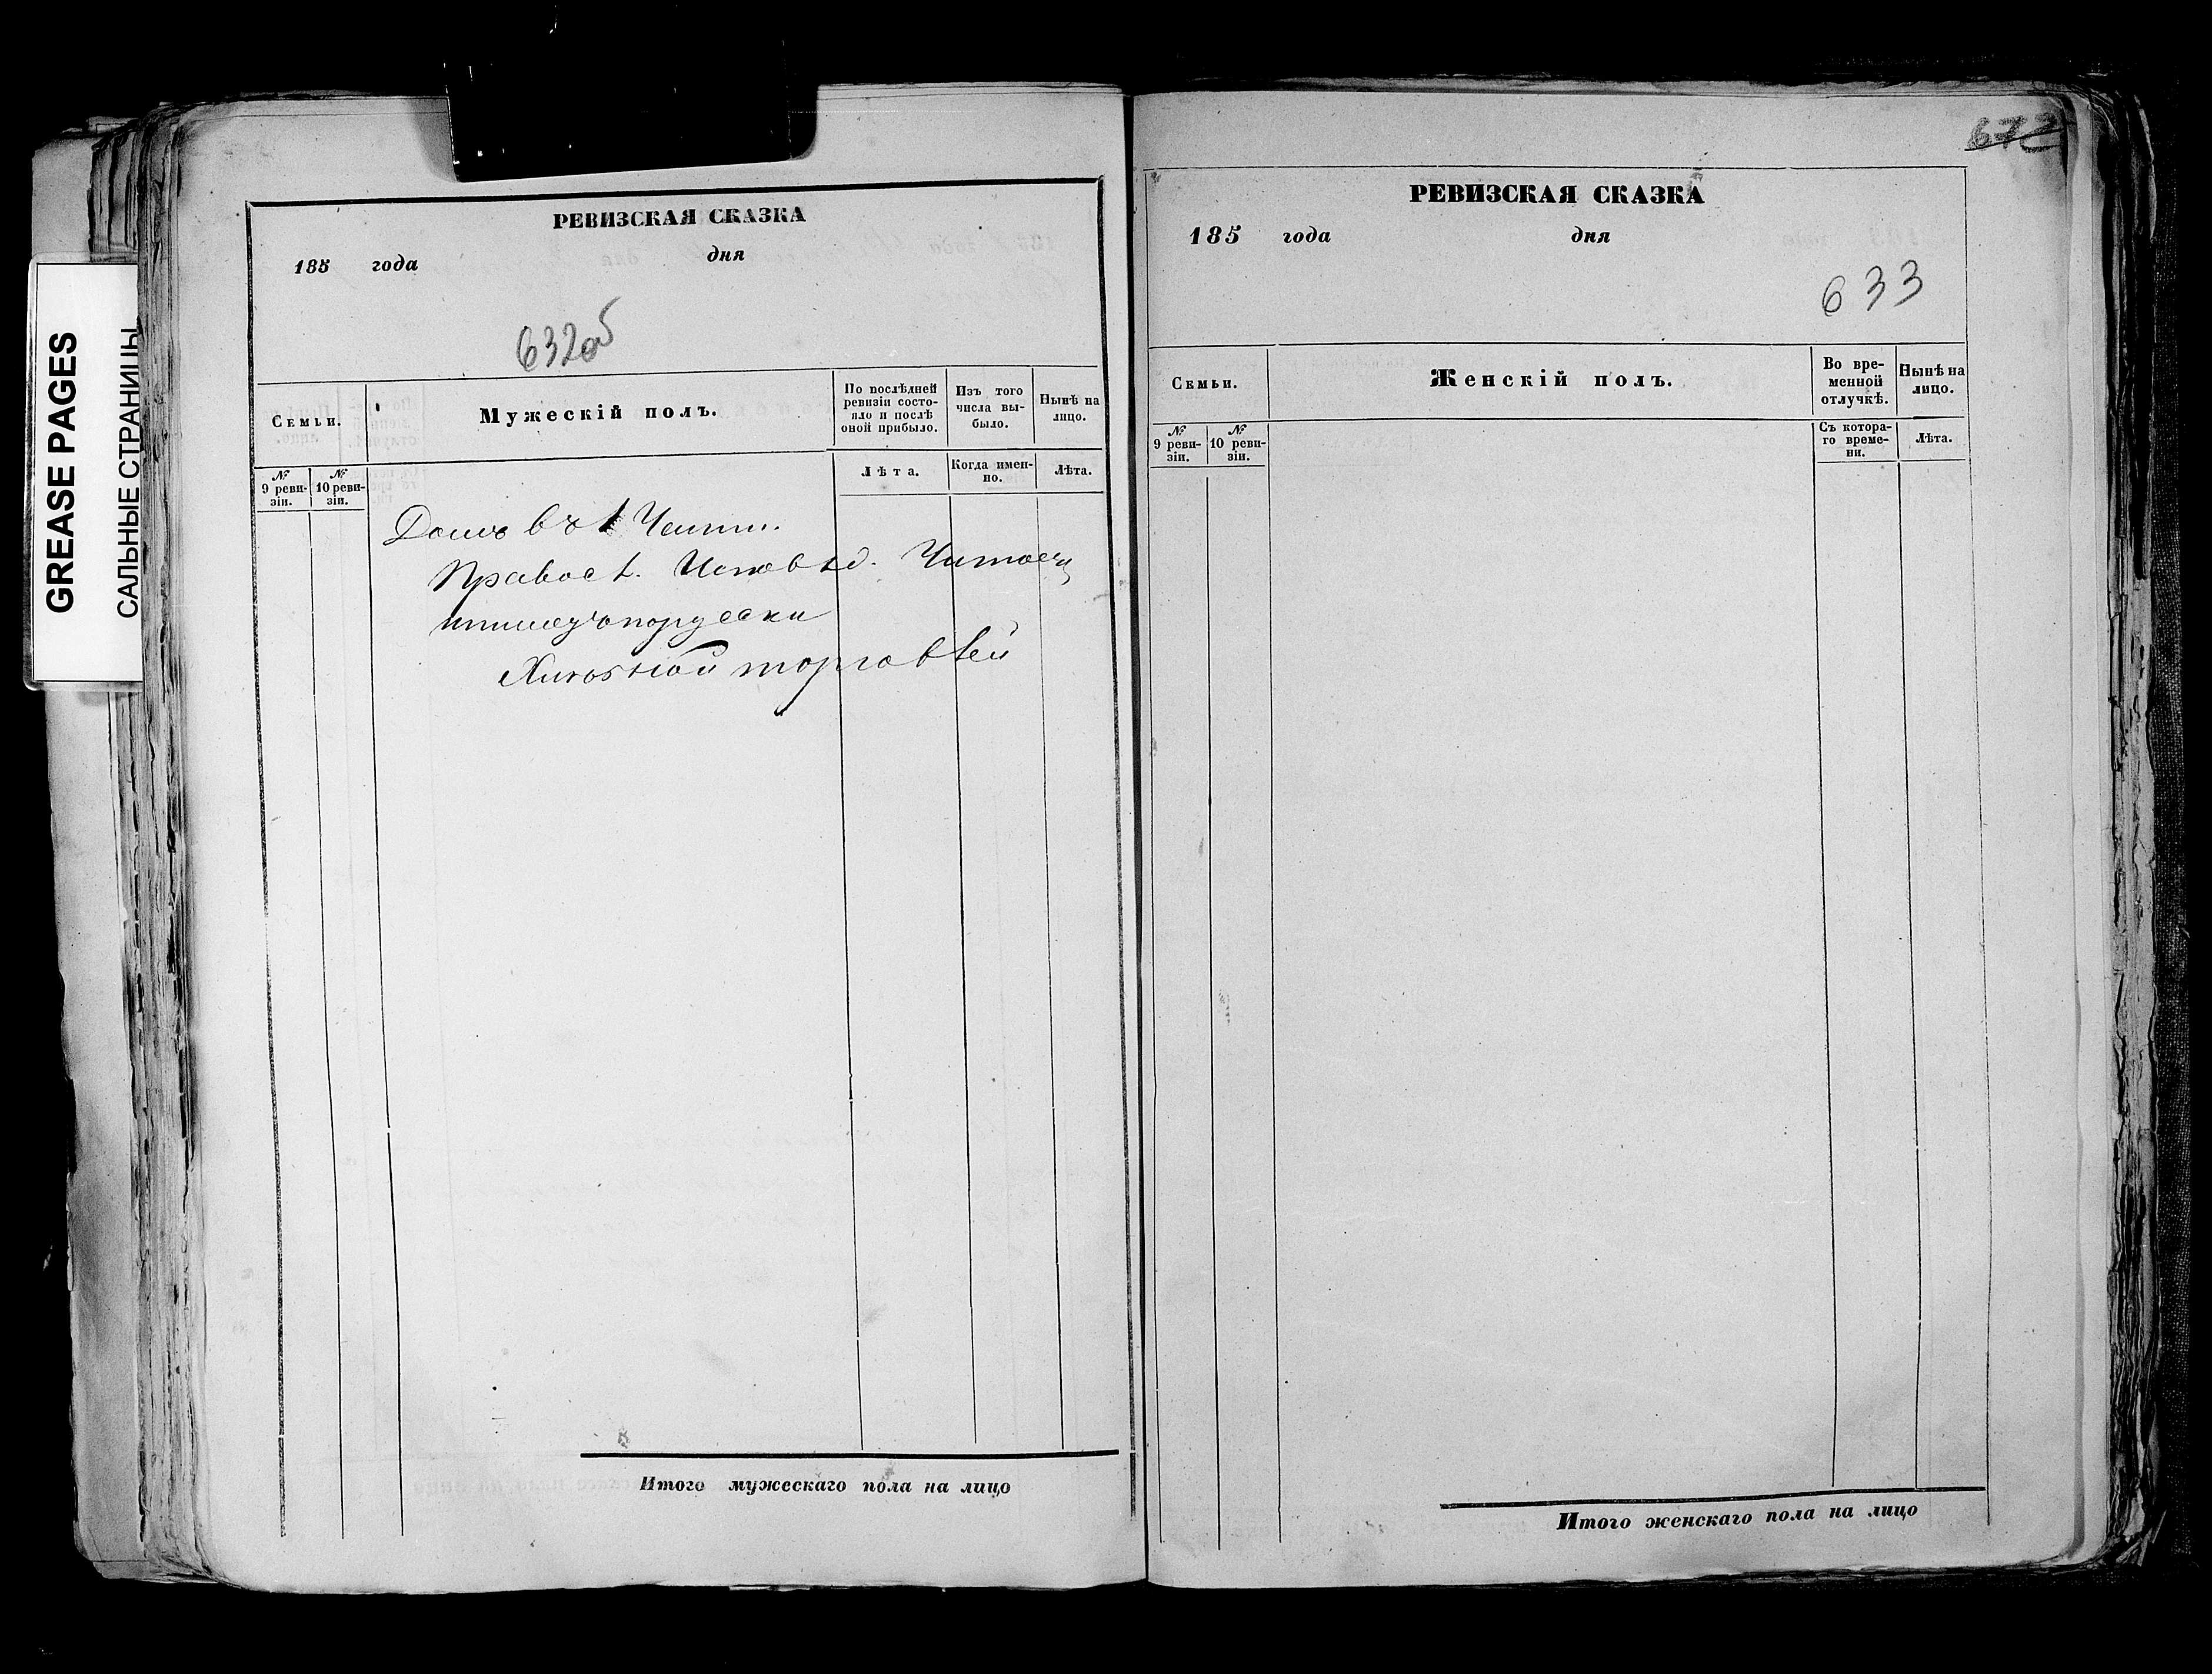 GREASE PAGES
САЛЬНЫЕ СТРАНИЦЫ
РЕВИЗСКАЯ СКАЗКА
185 года дня
632об
Семьи.
Мужескій полъ.
По послѣдней ревизіи состо-
яло и послѣ
оной прибыло.
Изъ того
числа вы-
было.
Нынѣ на
лицо.
№
9 реви-
зіи.
№
10 реви-
зіи.
Лѣта.
Когда имен-
но.
Лѣта.
Домъ въ 1 Части.
Правосл. Исповѣд. Читаетъ
ипишетъ порусски
торговлей
Итого мужескаго пола на лицо
672
РЕВИЗСКАЯ СКАЗКА
185 года дня
633
Семьи.
Женскій полъ.
Во вре-
менной
отлучкѣ.
Нынѣ на
лицо.
№
9 реви-
зіи.
№
10 реви-
зіи.
Съ котора-
го време-
ни.
Лѣта.
Итого женскаго пола на лицо